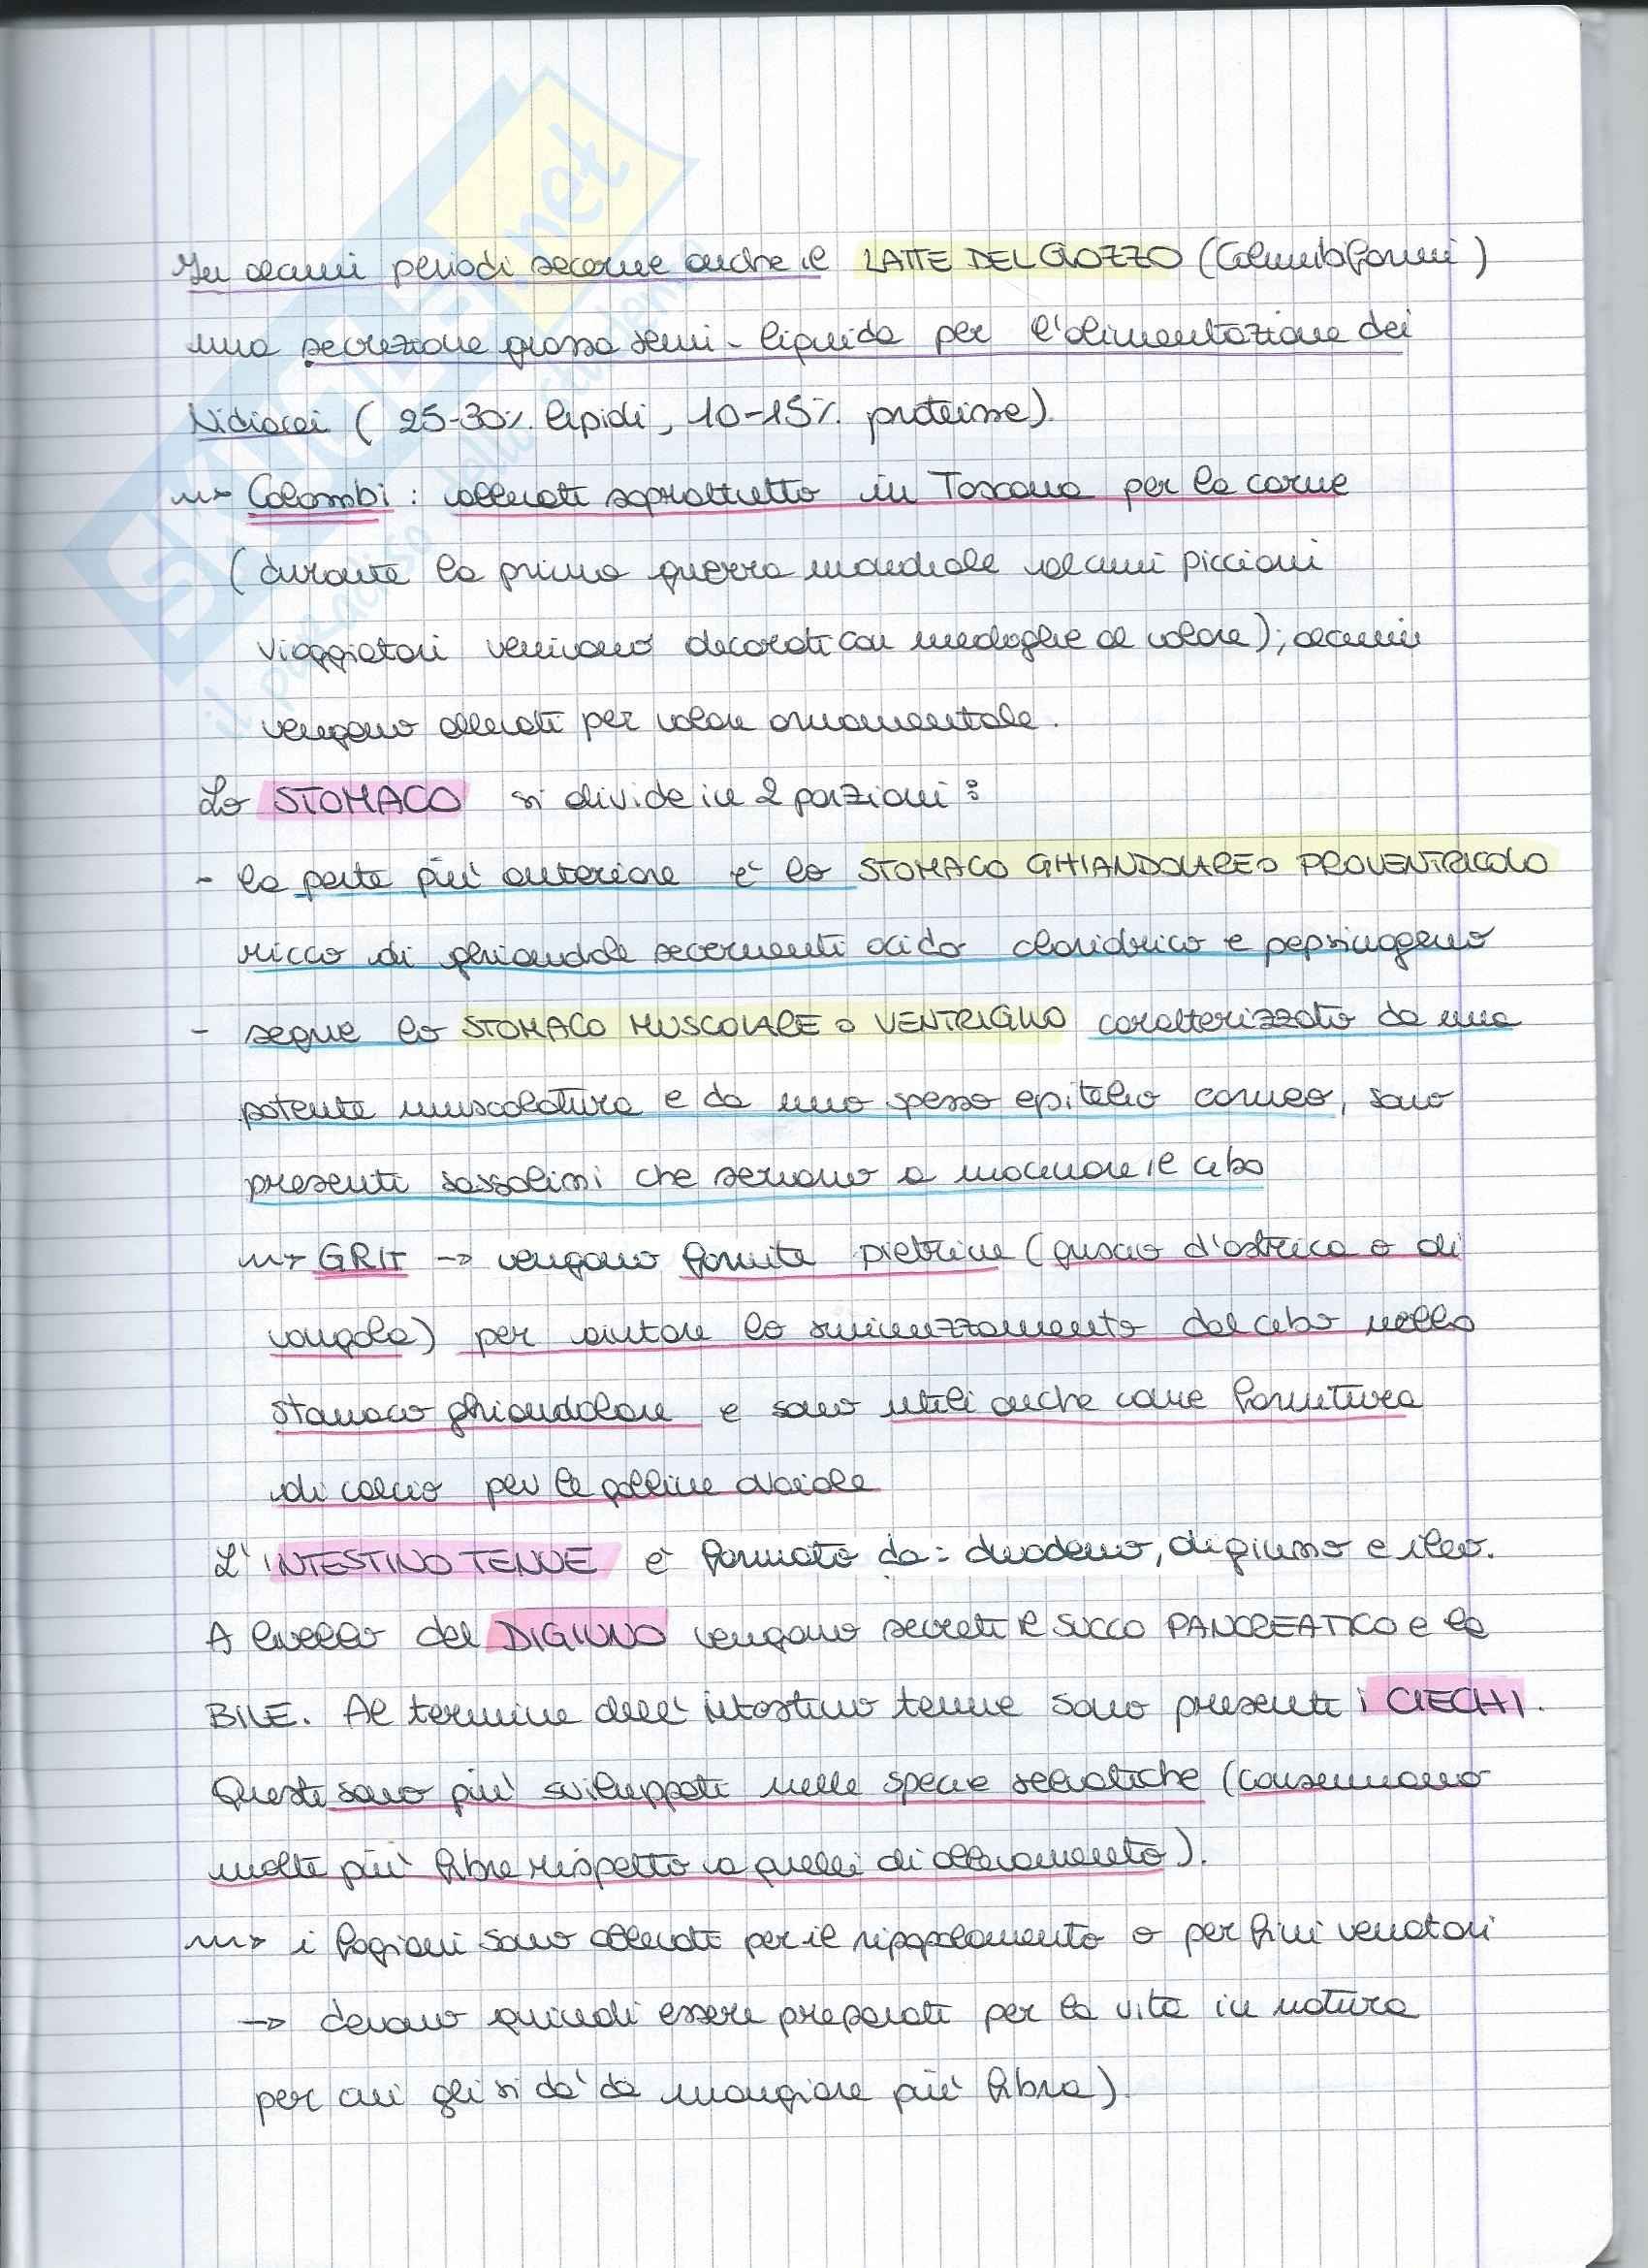 In alcuni periodi secerne anche il LATTE DEL GOZZO (Columbiformi)
una secrezione grassa semi-liquida per l'alimentazione dei
Nidiacei (25-30% lipidi, 10-15% proteine).
Colombi: allevati soprattutto in Toscana per la carne
(durante la prima guerra mondiale alcuni piccioni
viaggiatori venivano decorati con medaglie al valore); alcuni
vengono allevati per valore ornamentale.
Lo STOMACO si divide in 2 porzioni:
- la parte più anteriore è lo STOMACO GHIANDOLARE o PROVENTRICOLO
ricco di ghiandole secernenti acido cloridrico e pepsinogeno
- segue lo STOMACO MUSCOLARE o VENTRIGLIO caratterizzato da una
potente muscolatura e da uno spesso epitelio corneo, sono
presenti sassolini che servono a macinare il cibo
GRIT → vengono fornite pietrine (guscio d'ostrica o di
vongola) per aiutare lo sminuzzamento del cibo nello
stomaco ghiandolare e sono utili anche come fornitura
di calcio per le galline ovaiole
L'INTESTINO TENUE è formato da: duodeno, digiuno e ileo.
A livello del DIGIUNO vengono secreti il SUCCO PANCREATICO e la
BILE. Al termine dell'intestino tenue sono presenti i CIECHI.
Questi sono più sviluppati nelle specie selvatiche (consumano
molta più fibra rispetto a quelli di allevamento).
i fagiani sono allevati per il ripopolamento o per fini venatori
→ devono quindi essere preparati per la vita in natura
per cui gli si dà da mangiare più fibra)
SKUOLA.net
il paradiso dello studente